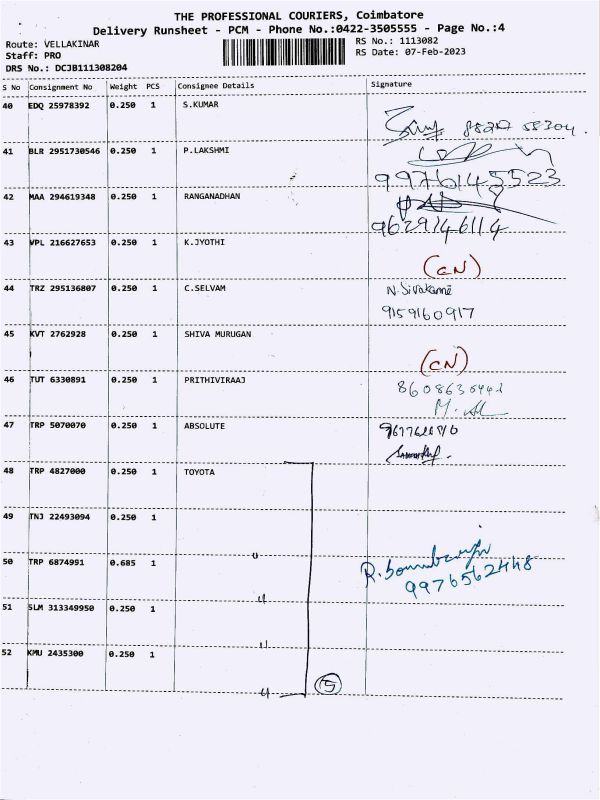 THE PROFESSIONAL COURIERS, Coimbatore
Delivery Runsheet - PCM - Phone No.:0422-3505555 - Page No.:4
Route: VELLAKINAR RS No.: 1113082
Staff: PRO RS Date: 07-Feb-2023
DRS No.: DCJB111308204
S No Consignment No Weight PCS Consignee Details Signature
40 EDQ 25978392 0.250 1 S.KUMAR
41 BLR 2951730546 0.250 1 P.LAKSHMI
9976145523
42 MAA 294619348 0.250 1 RANGANADHAN
9629746114
43 VPL 216627653 0.250 1 K.JYOTHI
(CN)
44 TRZ 295136807 0.250 1 C.SELVAM N. Sivakami
9159160917
45 KVT 2762928 0.250 1 SHIVA MURUGAN
(CN)
46 TUT 6330891 0.250 1 PRITHIVIRAAJ
47 TRP 5070070 0.250 1 ABSOLUTE
48 TRP 4827000 0.250 1 TOYOTA
49 TNJ 22493094 0.250 1
50 TRP 6874991 0.685 1
9976562448
51 SLM 313349950 0.250 1
52 KMU 2435300 0.250 1
5